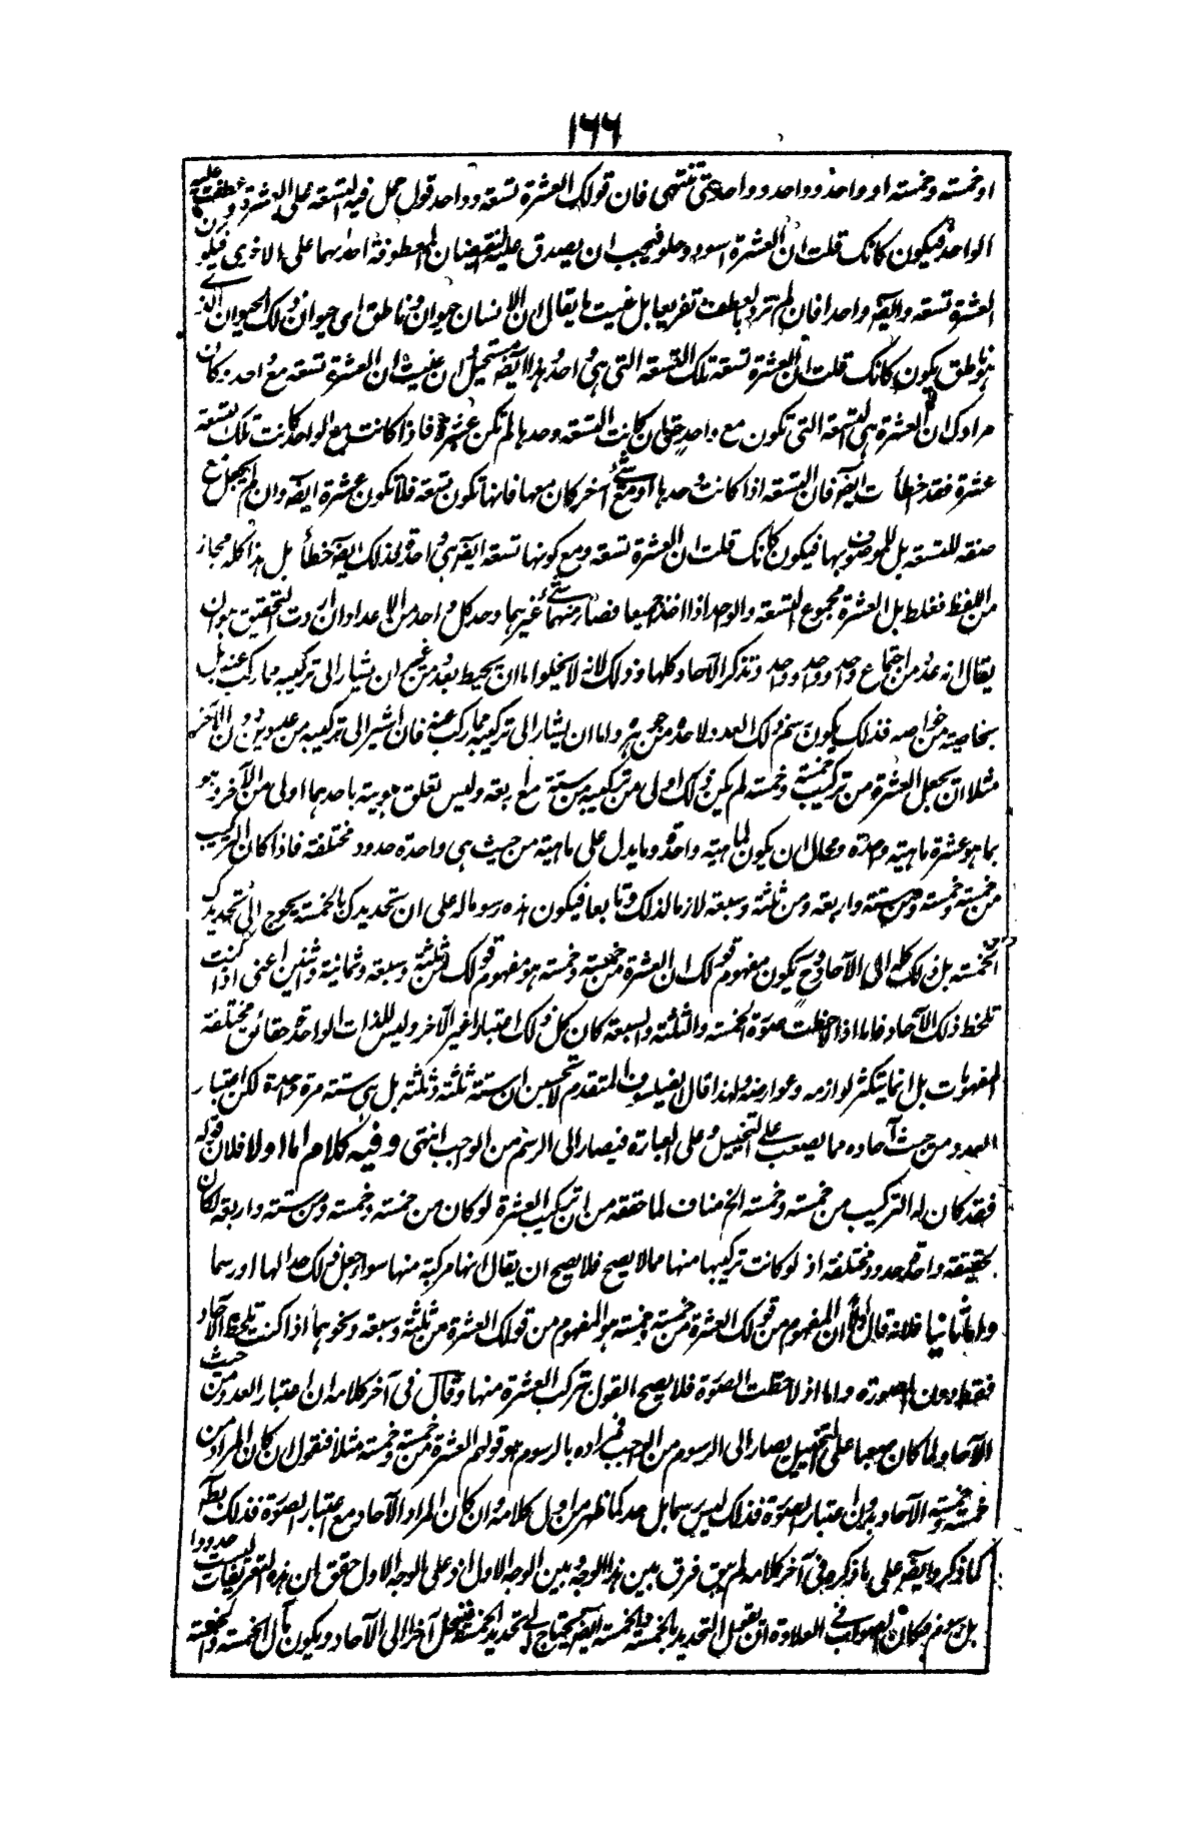 ١٦٦
او خمسة وخمسة او واحد وواحد وواحد حتى تنتهى فان قولك العشرة تسعة وواحد قول حمل فيه التسعة على العشرة وعطفت عليه
الواحد فيكون كانك قلت ان العشرة اسود وحلو فيجب ان يصدق عليه النقيضان المعطوفة احدهما على الاخرى فيكون
العشرة تسعة وايضا واحدا فان لم ترد بالعطف تعريفا بل عنيت ما يقال ان الانسان حيوان وناطق اى حيوان ذلك الحيوان الذى
هو ناطق يكون كانك قلت ان العشرة تسعة تلك التسعة التى هى واحد وهذا ايضا مستحيل وان عنيت ان العشرة تسعة مع واحد وكان
مرادك ان العشرة هى التسعة التى تكون مع واحد حتى ان كانت التسعة وحدها لم تكن عشرة فاذا كانت مع الواحد كانت تلك التسعة
عشرة فقد اخطأت ايضا فان التسعة اذا كانت وحدها او مع شئ آخر كان معها فانها تكون تسعة فلا تكون عشرة ايضا وان لم يجعل مع
صفة للتسعة بل للموصوف بها فيكون كانك قلت ان العشرة تسعة ومع كونها تسعة ايضا هى واحد فذلك ايضا خطأ بل هذا كله مجاز
من اللفظ مغلط بل العشرة مجموع التسعة والواحد اذا اخذا جميعا فصار منهما شئ غيرهما وحد كل واحد من الاعداد ان اردت التحقيق هو ان
يقال انه عدد من اجتماع واحد وواحد وواحد وتذكر الآحاد كلها وذلك لانه لا يخلو اما ان يحيط بعدد من غير ان يشار الى تركيبه مما ركب عنه بل
بخاصية من خواصه فذلك يكون رسم ذلك العدد لا حده من جوهره واما ان يشار الى تركيبه مما ركب عنه فان اشير الى تركيبه من عددين دون الآخر
مثلا ان يجعل العشرة من تركيب خمسة وخمسة لم يكن ذلك اولى من تركيبه من ستة مع اربعة وليس تعلق هويته باحدهما اولى من الآخر وهو
بما هو عشرة ماهية واحدة ومحال ان يكون لماهية واحدة وما يدل على ماهيته من حيث هى واحدة حدود مختلفة فاذا كان التركيب
من خمسة وخمسة ومن ستة واربعة ومن ثلثة وسبعة لازما لذلك وتابعا فيكون هذه رسوما له على ان تحديدك بالخمسة يحوج الى تحديد
الخمسة بل ذلك كله الى الآحاد وح يكون مفهوم قولك ان العشرة من خمسة وخمسة هو مفهوم قولك من ثلثة وسبعة وثمانية واثنين اعنى اذا كنت
تلحظ ذلك الآحاد فاما اذا لاحظت صورة الخمسة والثلثة والسبعة كان كل ذلك اعتبارا غير الآخر وليس للذات الواحدة حقائق مختلفة
المفهومات بل انما يتكثر لوازمه وعوارضه ولهذا قال الفيلسوف المتقدم لا تحسبن ان ستة ثلثة وثلثة بل هى ستة مرة واحدة لكن اعتبار
العدد من حيث آحاده مما يصعب على التخييل وعلى العبارة فيصار الى الرسم من الواجب انتهى وفيه كلام اما اولا فلان قوله
فقد كان له التركيب من خمسة وخمسة الخ مناف لما حققه من ان تركيب العشرة لو كان من خمسة وخمسة ومن ستة واربعة لكان
لحقيقة واحدة حدود مختلفة اذ لو كانت تركيبها منها مما لا يصح فلا يصح ان يقال انها مركبة منها سواء جعل ذلك حدا لها او رسما
واما ثانيا فلانه قال اولا ان المفهوم من قولك العشرة من خمسة وخمسة هو المفهوم من قولك العشرة من ثلثة وسبعة ونحوهما اذا كنت تلحظ الآحاد
فقط دون الصورة واما اذ لاحظت الصورة فلا يصح القول بتركب العشرة منها وقال فى آخر كلامه ان اعتبار العدد من حيث
الآحاد لما كان صعبا على التخييل يصار الى الرسوم من الواجب فمراده بالرسوم هو قولهم العشرة من خمسة وخمسة مثلا فنقول ان كان المراد من
خمسة وخمسة الآحاد بدون اعتبار الصورة فذلك ليس رسما بل حد كما ظهر من اول كلامه وان كان المراد الآحاد مع اعتبار الصورة فذلك بطل
كما ذكر وايضا على ما ذكره فى آخر كلامه لم يبق فرق بين هذا الوجه وبين الوجه الاول اذ على الوجه الاول حقق ان هذه التعريفات ليست حدودا
بل رسوم فكان الصواب فى العلاوة ان يقول التحديد بالخمسة والخمسة ايضا يحتاج الى تحديد الخمسة فينحل آخرا الى الآحاد ويكون مآل الخمسة والخمسة